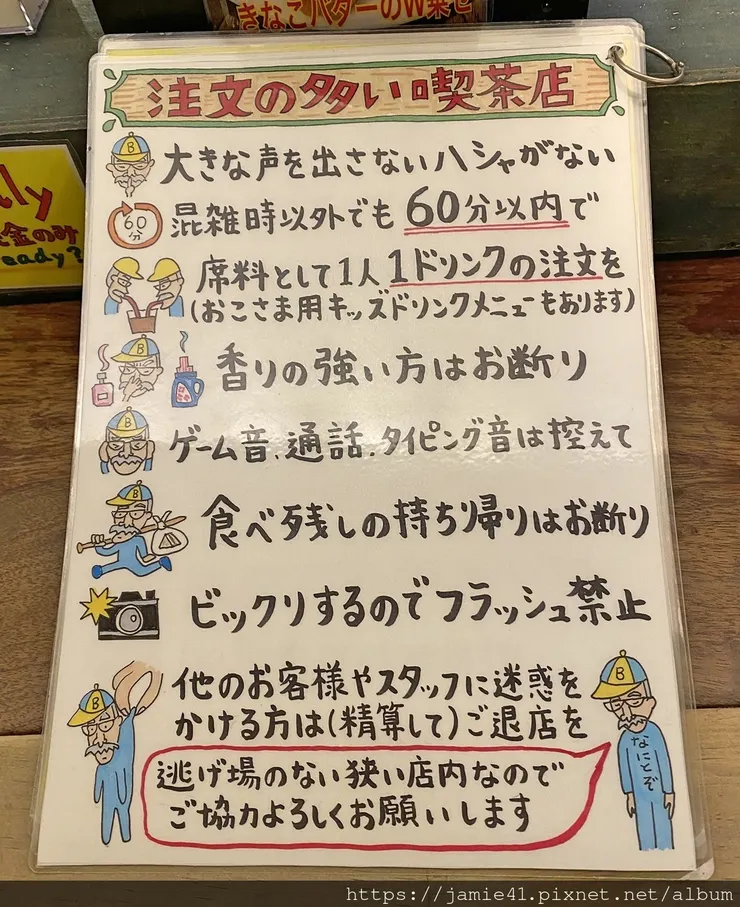 きなこバターのW乗せ
注文の多い喫茶店
大きな声を出さないハシャがない
60分
混雑時以外でも60分以内で
席料として1人1ドリンクの注文を
(おこさま用キッズドリンクメニューもあります)
香りの強い方はお断り
ゲーム音、通話、タイピング音は控えて
食べ残しの持ち帰りはお断り
ビックリするのでフラッシュ禁止
他のお客様やスタッフに迷惑を
かける方は(精算して)ご退店を
逃げ場のない狭い店内なので
ご協力よろしくお願いします
なにとぞ
B
B
B
B
B
B
ly
金のみ
eady?
https://jamie41.pixnet.net/album